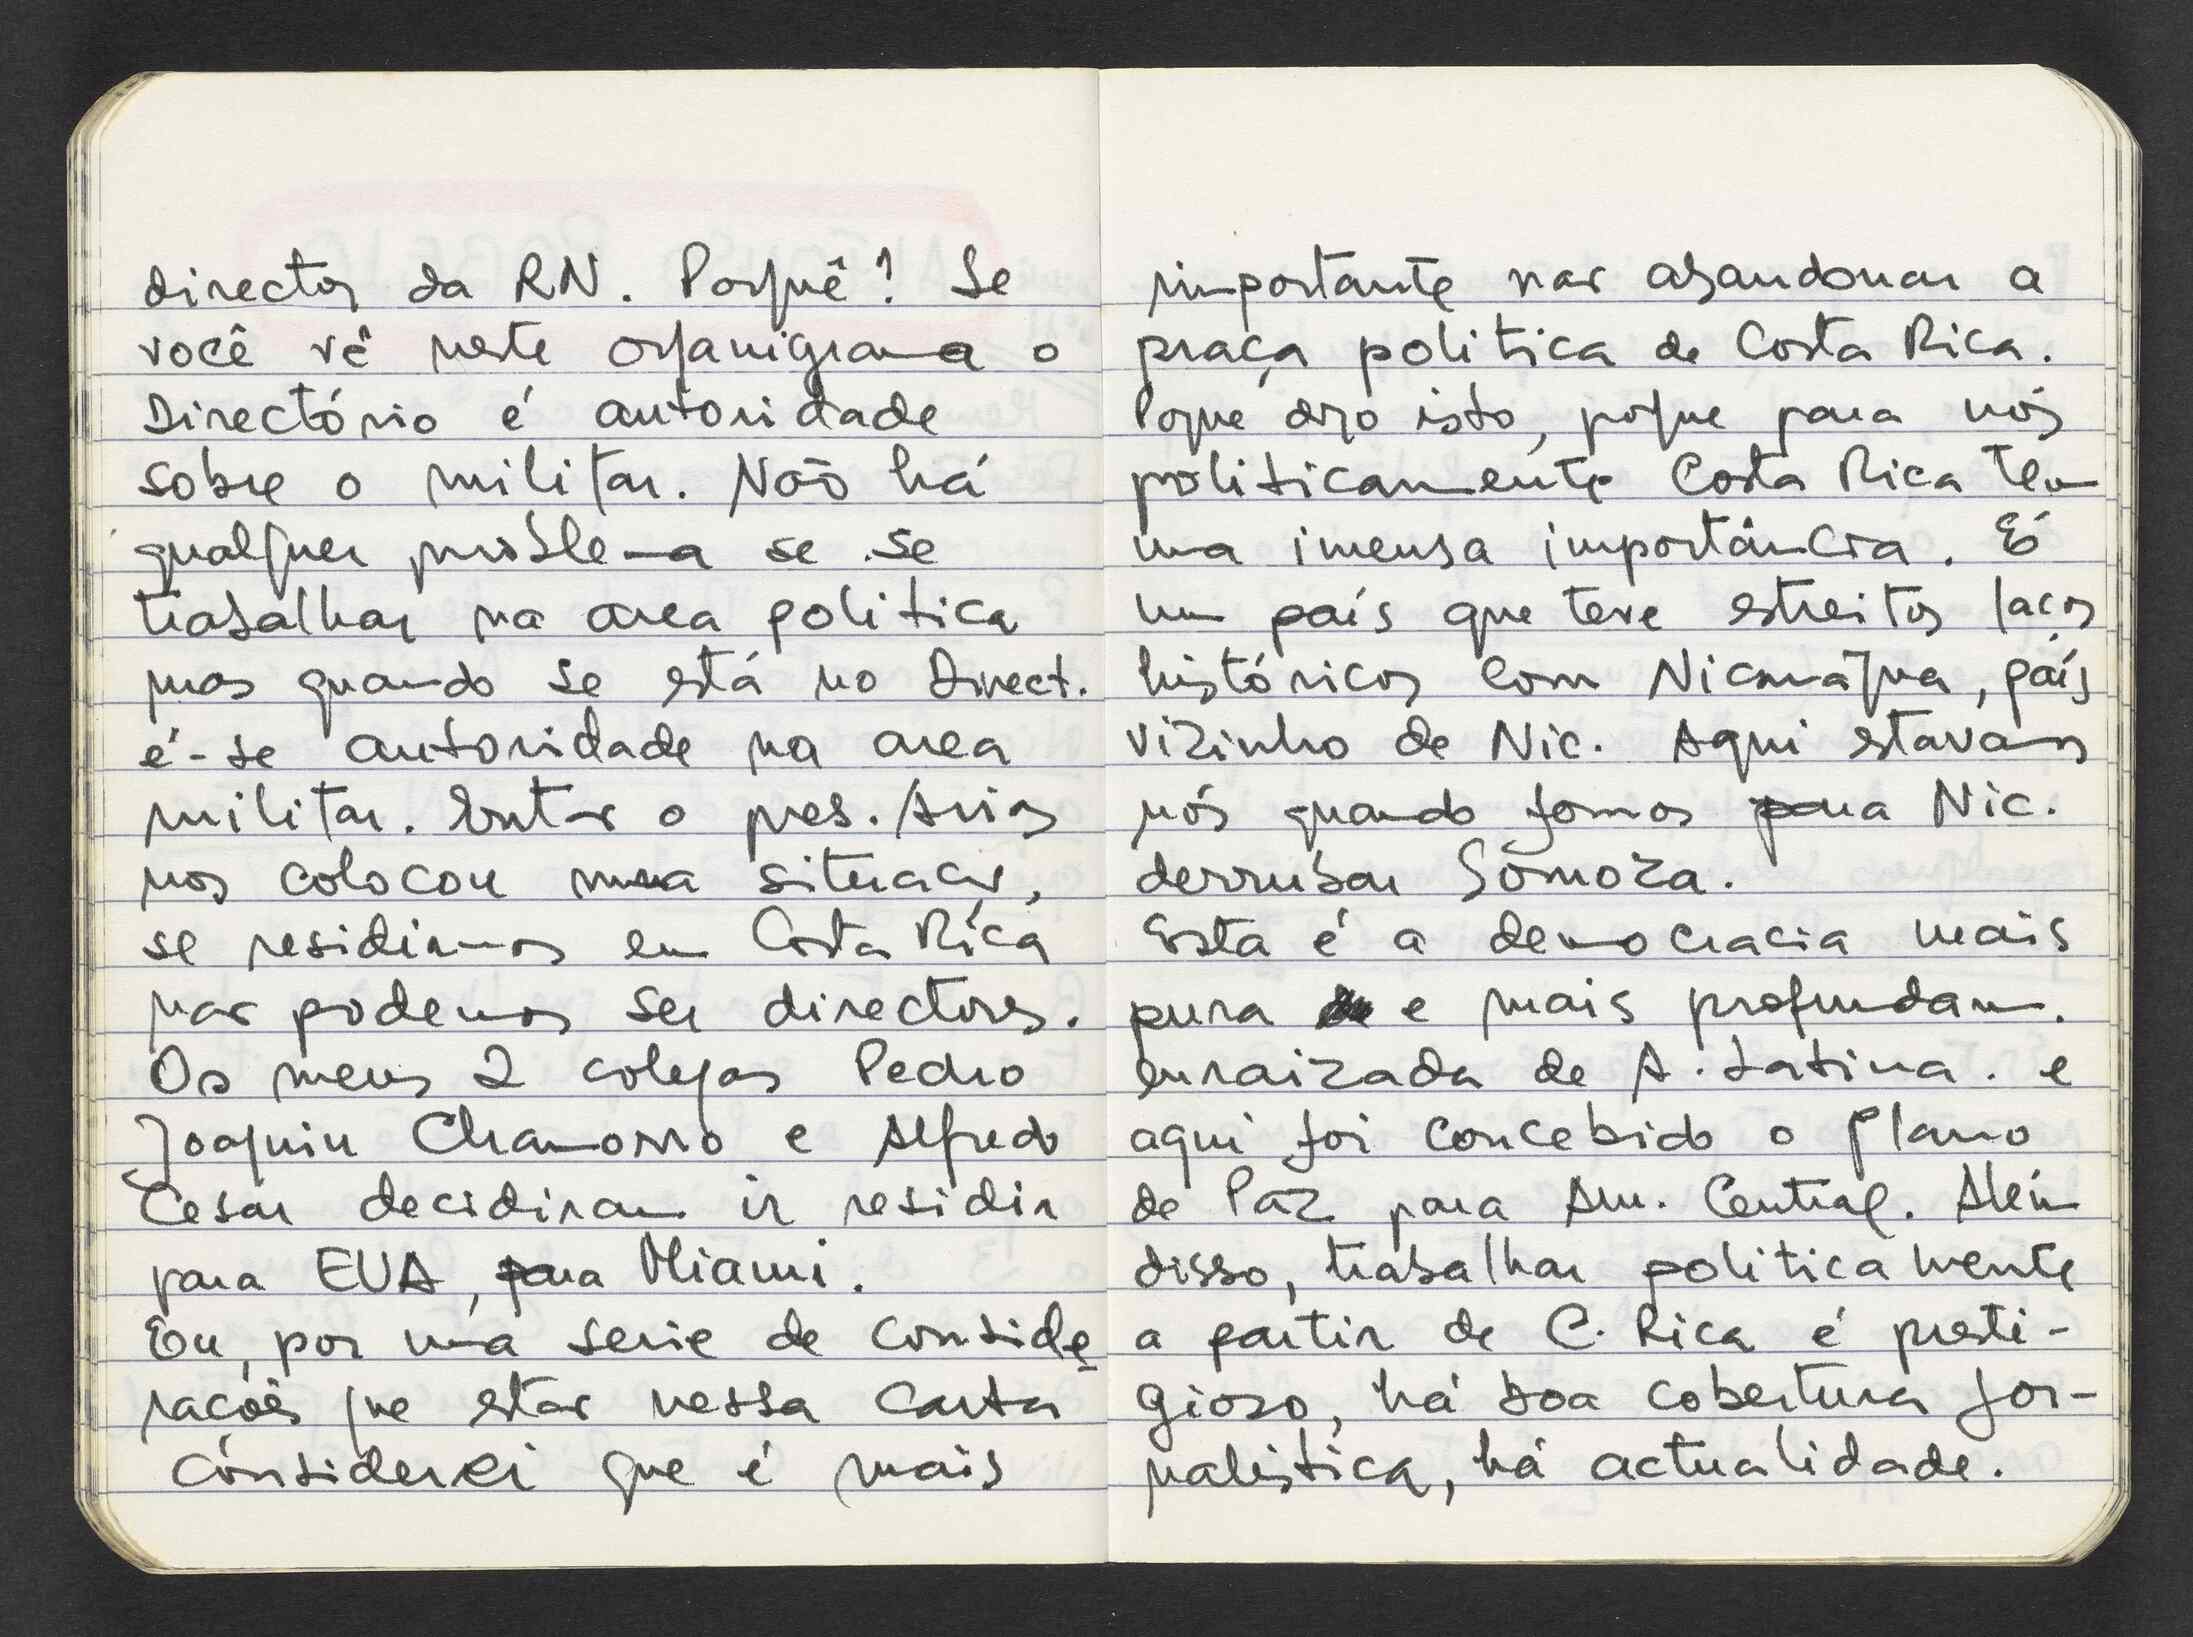 director da RN. Porquê? Se
você vê neste organigrama o
Directório é autoridade
sobre o militar. Não há
qualquer problema se se
trabalhar na area politica
mas quando se está no Direct.
é-se autoridade na area
militar. Entao o pres. Arias
nos colocou numa situacao,
se residimos em Costa Rica
nao podemos ser directores.
Os meus 2 colegas Pedro
Joaquin Chamorro e Alfredo
Cesar decidiram ir residir
para EUA, para Miami.
Eu, por uma serie de conside
rações que estao nessa carta
considerei que é mais
importante nao abandonar a
praça politica de Costa Rica.
Porque digo isto, porque para nós
politicamente Costa Rica tem
uma imensa importância. É
um país que teve estreitos laços
históricos com Nicarágua, país
vizinho de Nic. Aqui estavamos
nós quando fomos para Nic.
derrubar Somoza.
Esta é a democracia mais
pura e mais profundam.
enraizada de A. Latina. e
aqui foi concebido o Plano
de Paz para Am. Central. Além
disso, trabalhar politicamente
a partir de C. Rica é presti-
gioso, há boa cobertura jor-
nalistica, há actualidade.